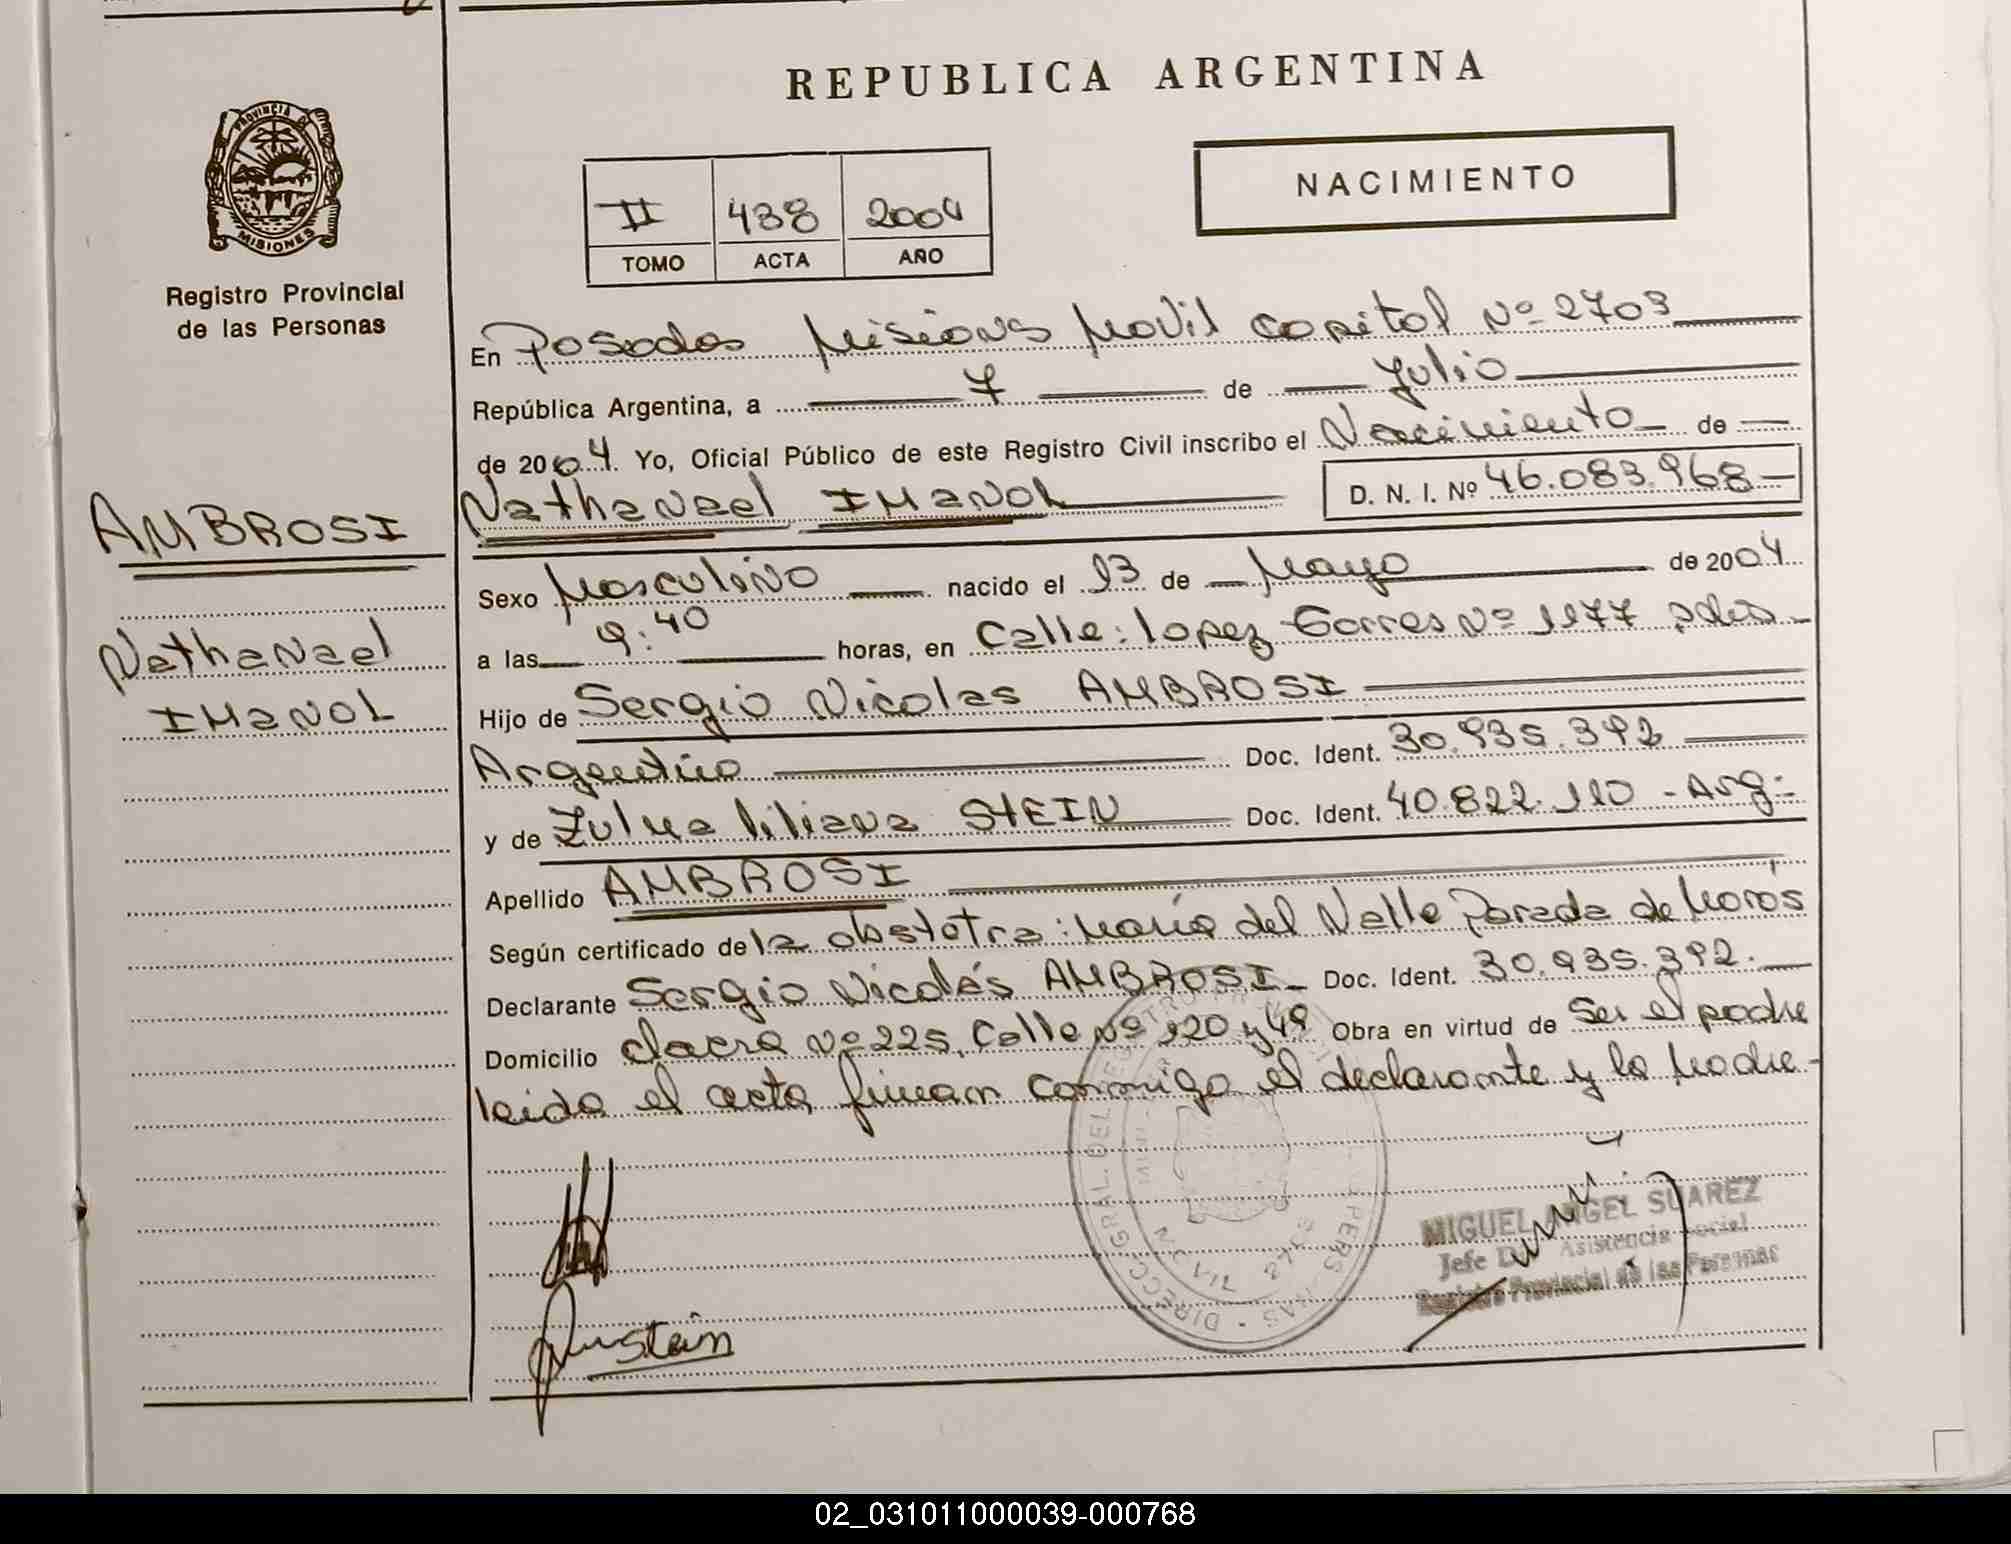 REPUBLICA ARGENTINA
PROVINCIA D
MISIONES
Registro Provincial
de las Personas
NACIMIENTO
II 438 2004
TOMO ACTA AÑO
En Posadas Misiones Movil capital Nº 2703
República Argentina, a 7 de Julio
de 2004. Yo, Oficial Público de este Registro Civil inscribo el Nacimiento de
Nathanael IMANOL D. N. I. Nº 46.083.968
AMBROSI
Nathanael
IMANOL
Sexo Masculino nacido el 13 de Mayo de 2004
a las 9:40 horas, en Calle: lopez Torres Nº 1177 pdas
Hijo de Sergio Nicolas AMBROSI
Argentino Doc. Ident. 30.935.392
y de Zulma liliana STEIN Doc. Ident. 40.822.110 - Arg:
Apellido AMBROSI
Según certificado de la obstetra: María del Valle Parada de Morós
Declarante Sergio Nicolás AMBROSI Doc. Ident. 30.935.392.
Domicilio chacra Nº 225, Calle Nº 120 y 49 Obra en virtud de Ser el padre
leida el acta firman conmigo el declarante y la Madre
MIGUEL ANGEL SUAREZ
Jefe Asistencia Social
Registro Provincial de las Personas
02_031011000039-000768